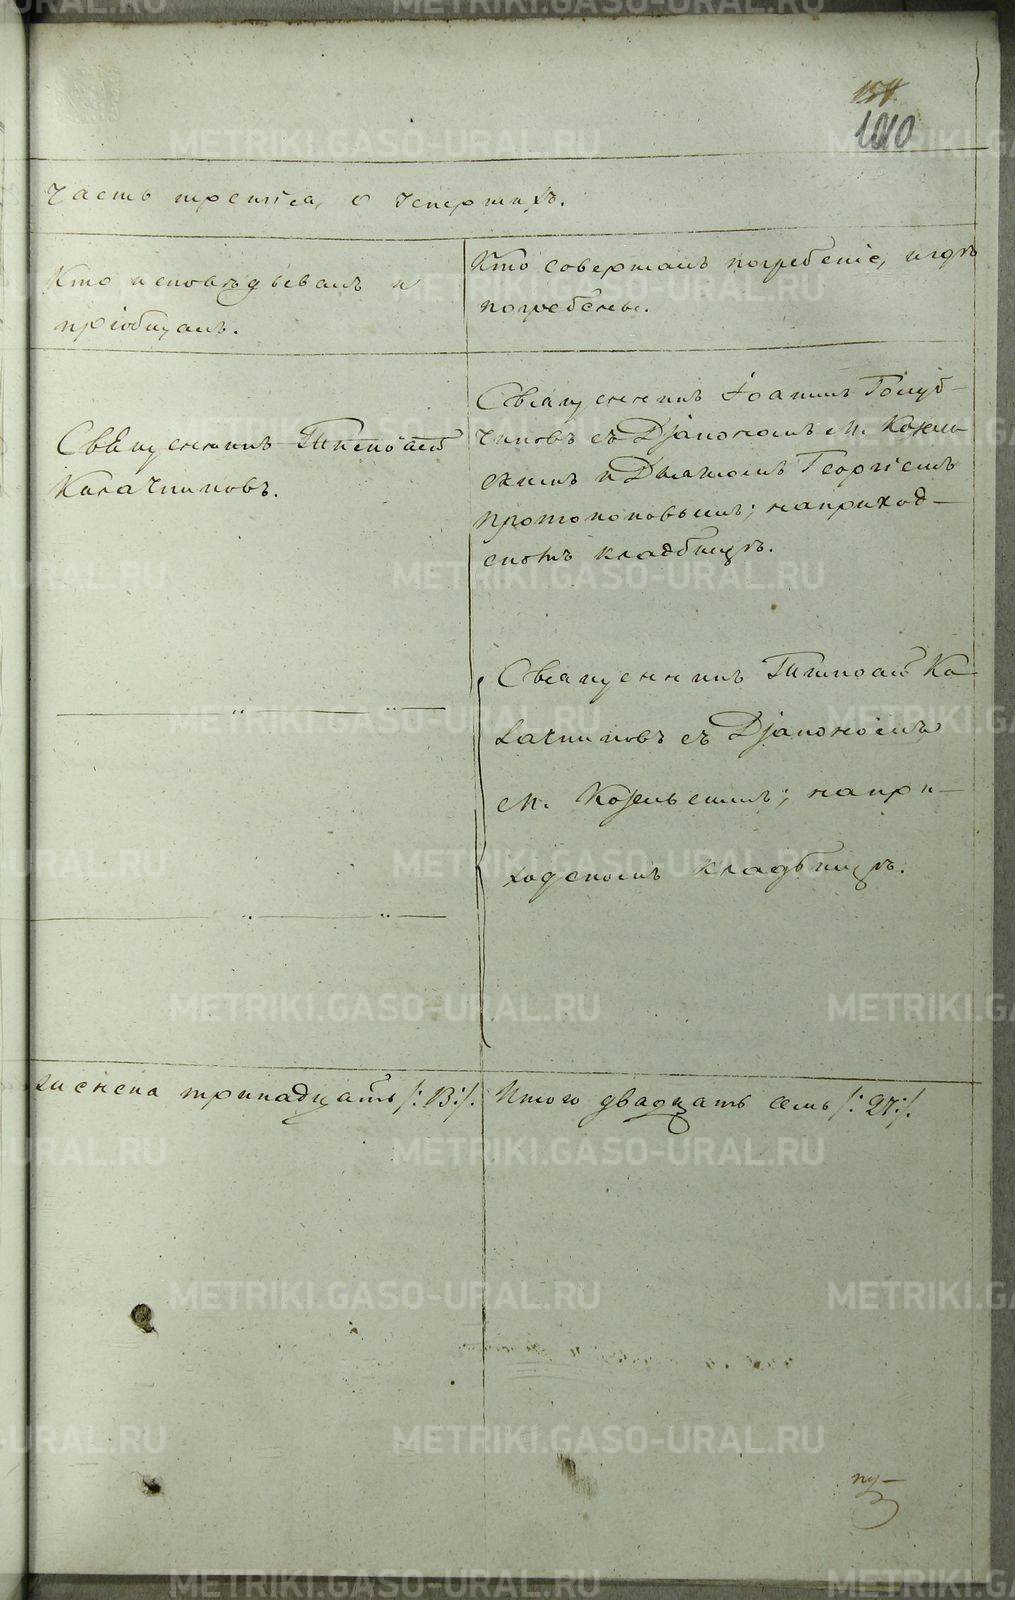 154
1010
Часть третія, о умершихъ.
Кто исповѣдывалъ и
пріобщалъ.
Кто совершалъ погребеніе, и гдѣ
погребены.
Священникъ
Калачниковъ.
Священникъ Іоаннъ Голуб-
чиковъ съ Діакономъ М.
и Дьячкомъ Георгіемъ
Протопоповымъ; на приход-
скомъ кладбищѣ.
Священникъ Ка-
лачниковъ съ Діакономъ
М. Козельскимъ; на при-
ходскомъ кладбищѣ.
тринадцать /:13:/.
Итого двадцать семь /:27:/.
METRIKI.GASO-URAL.RU